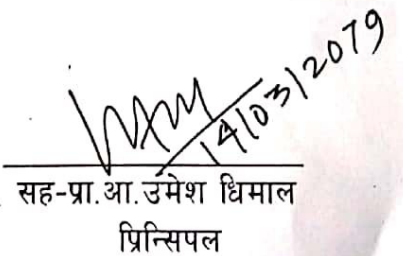 14/03/2079
सह-प्रा.आ.उमेश धिमाल
प्रिन्सिपल